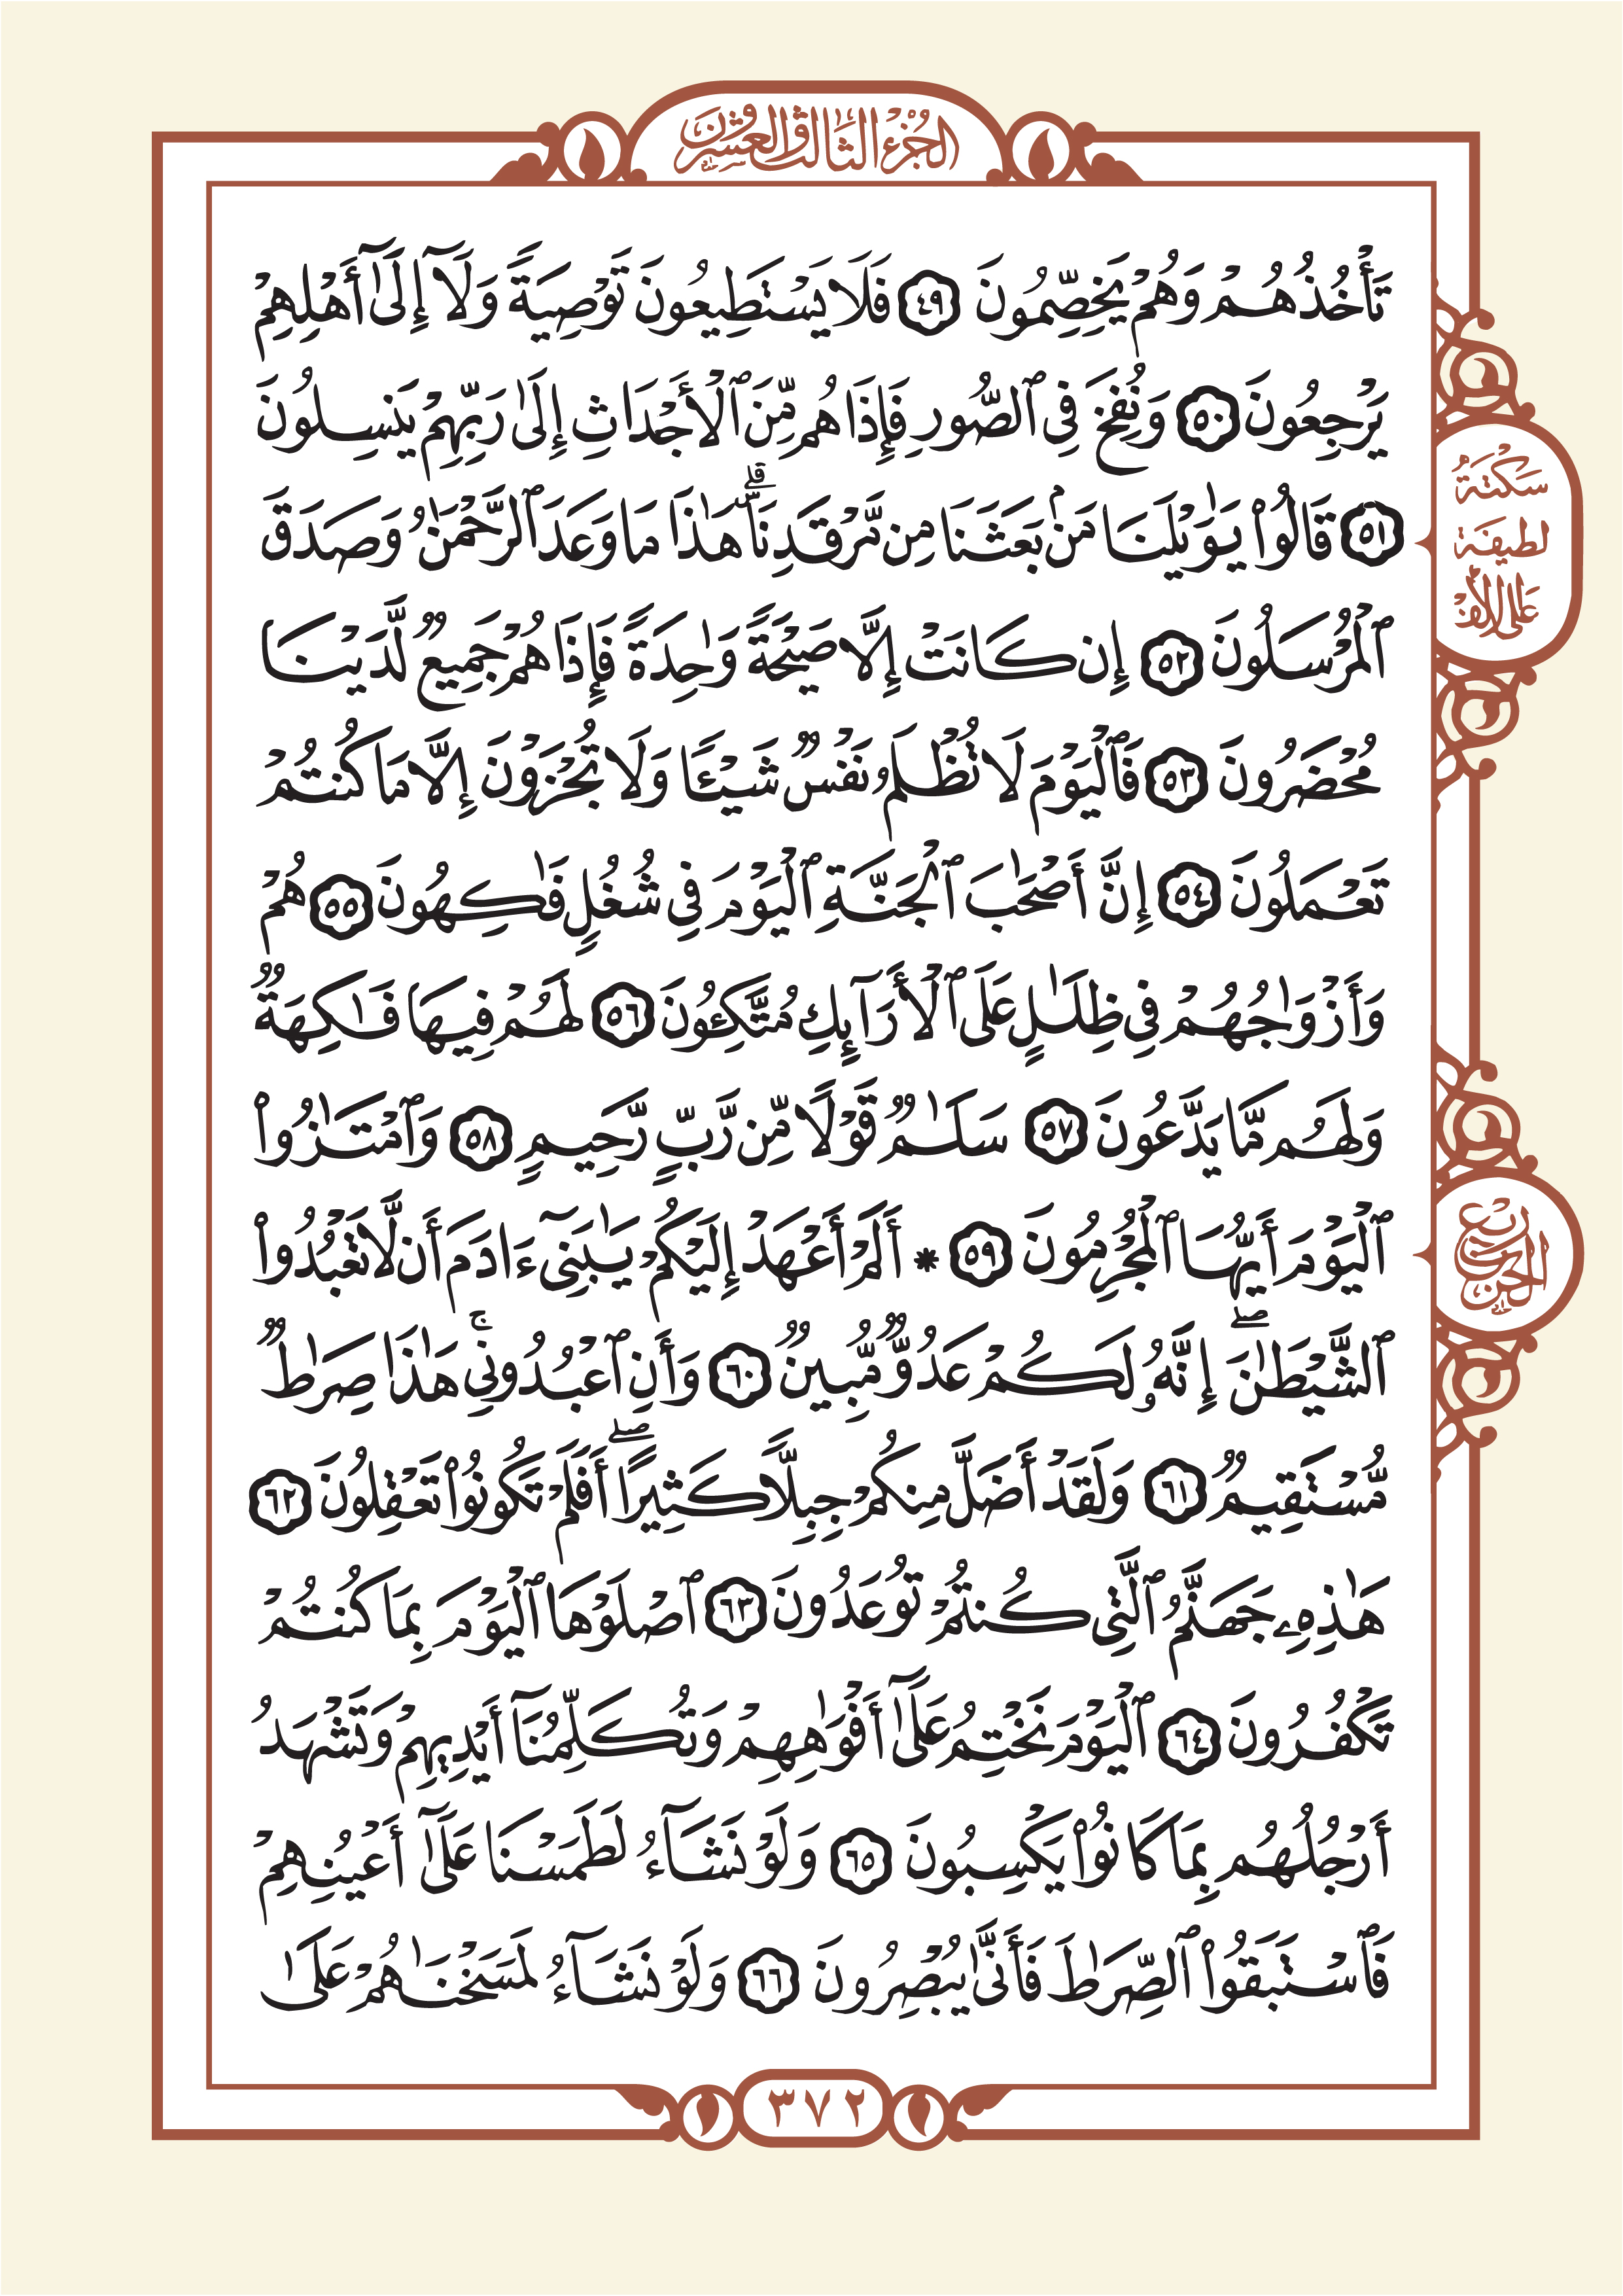 الجزء الثالث والعشرون
تَأْخُذُهُمْ وَهُمْ يَخِصِّمُونَ ٤٩ فَلَا يَسْتَطِيعُونَ تَوْصِيَةً وَلَآ إِلَىٰٓ أَهْلِهِمْ
يَرْجِعُونَ ٥٠ وَنُفِخَ فِى ٱلصُّورِ فَإِذَا هُم مِّنَ ٱلْأَجْدَاثِ إِلَىٰ رَبِّهِمْ يَنسِلُونَ
٥١ قَالُوا۟ يَـٰوَيْلَنَا مَنۢ بَعَثَنَا مِن مَّرْقَدِنَا ۜ ۗ هَـٰذَا مَا وَعَدَ ٱلرَّحْمَـٰنُ وَصَدَقَ
ٱلْمُرْسَلُونَ ٥٢ إِن كَانَتْ إِلَّا صَيْحَةً وَٰحِدَةً فَإِذَا هُمْ جَمِيعٌ لَّدَيْنَا
مُحْضَرُونَ ٥٣ فَٱلْيَوْمَ لَا تُظْلَمُ نَفْسٌ شَيْـًٔا وَلَا تُجْزَوْنَ إِلَّا مَا كُنتُمْ
تَعْمَلُونَ ٥٤ إِنَّ أَصْحَـٰبَ ٱلْجَنَّةِ ٱلْيَوْمَ فِى شُغُلٍ فَـٰكِهُونَ ٥٥ هُمْ
وَأَزْوَٰجُهُمْ فِى ظِلَـٰلٍ عَلَى ٱلْأَرَآئِكِ مُتَّكِـُٔونَ ٥٦ لَهُمْ فِيهَا فَـٰكِهَةٌ
وَلَهُم مَّا يَدَّعُونَ ٥٧ سَلَـٰمٌ قَوْلًا مِّن رَّبٍّ رَّحِيمٍ ٥٨ وَٱمْتَـٰزُوا۟
ٱلْيَوْمَ أَيُّهَا ٱلْمُجْرِمُونَ ٥٩ * أَلَمْ أَعْهَدْ إِلَيْكُمْ يَـٰبَنِىٓ ءَادَمَ أَن لَّا تَعْبُدُوا۟
ٱلشَّيْطَـٰنَ ۖ إِنَّهُۥ لَكُمْ عَدُوٌّ مُّبِينٌ ٦٠ وَأَنِ ٱعْبُدُونِى ۚ هَـٰذَا صِرَٰطٌ
مُّسْتَقِيمٌ ٦١ وَلَقَدْ أَضَلَّ مِنكُمْ جِبِلًّا كَثِيرًا ۖ أَفَلَمْ تَكُونُوا۟ تَعْقِلُونَ ٦٢
هَـٰذِهِۦ جَهَنَّمُ ٱلَّتِى كُنتُمْ تُوعَدُونَ ٦٣ ٱصْلَوْهَا ٱلْيَوْمَ بِمَا كُنتُمْ
تَكْفُرُونَ ٦٤ ٱلْيَوْمَ نَخْتِمُ عَلَىٰٓ أَفْوَٰهِهِمْ وَتُكَلِّمُنَآ أَيْدِيهِمْ وَتَشْهَدُ
أَرْجُلُهُم بِمَا كَانُوا۟ يَكْسِبُونَ ٦٥ وَلَوْ نَشَآءُ لَطَمَسْنَا عَلَىٰٓ أَعْيُنِهِمْ
فَٱسْتَبَقُوا۟ ٱلصِّرَٰطَ فَأَنَّىٰ يُبْصِرُونَ ٦٦ وَلَوْ نَشَآءُ لَمَسَخْنَـٰهُمْ عَلَىٰ
سكتة
لطيفة
على الألف
ربع
الحزب
٣٧٢